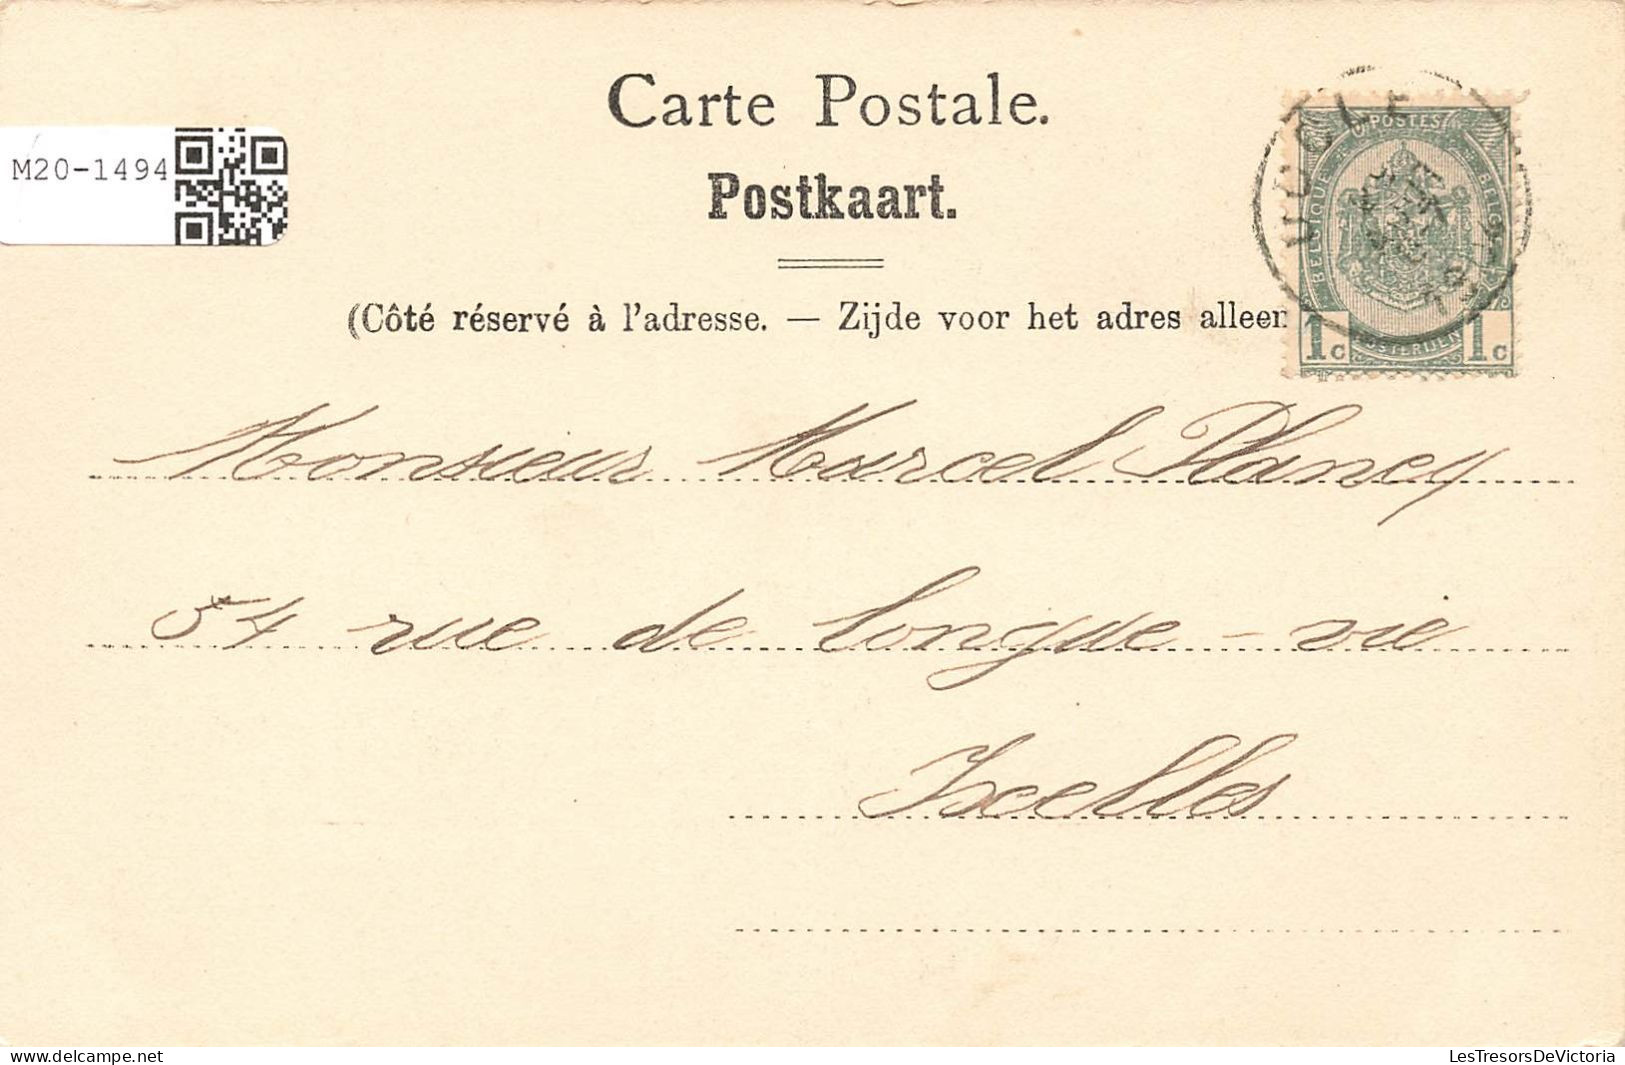 Carte Postale.
M20-1494
Postkaart.
(Côté réservé à l'adresse. — Zijde voor het adres alleen
POSTES
BELGIQUE
BELGIË
POSTERIJEN
1c 1c
UCCLE
Monsieur Marcel Plancy
54 rue de longue-vie
Ixelles
M20-1494.psme.com
LesTresorsDeVictoria